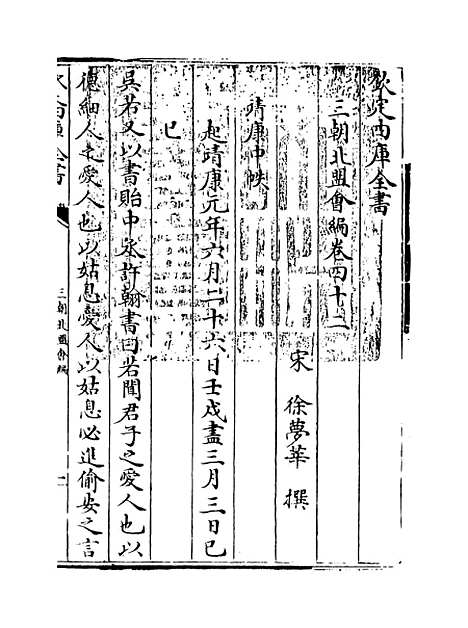 欽定四庫全書
三朝北盟會編卷四十二
宋 徐夢莘 撰
靖康中帙
起靖康元年六月二十六日壬戌盡三月三日己
巳
吳若又以書貽中丞許翰書曰若聞君子之愛人也以
德細人之愛人也以姑息愛人以姑息必進偷安之言
三朝北盟會編
一